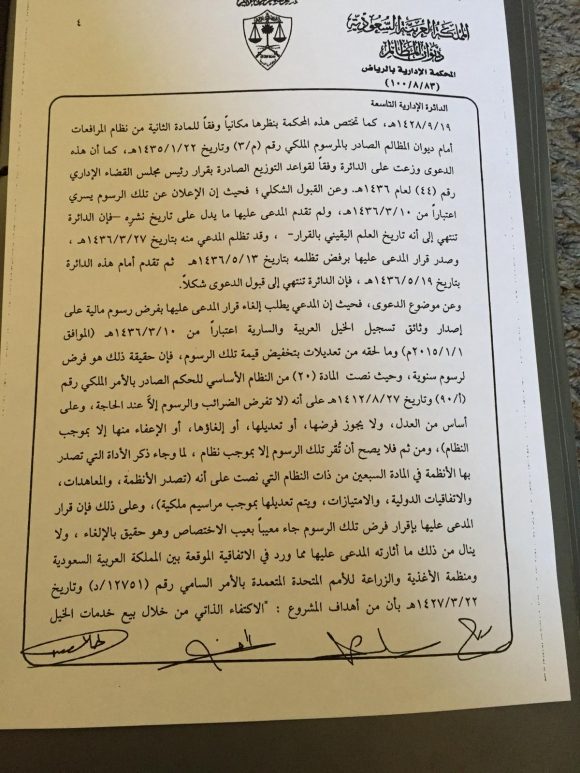 ٤
المملكة العربية السعودية
ديوان المظالم
المحكمة الإدارية بالرياض
(١٠٠/٨/٨٣)
الدائرة الإدارية التاسعة
١٤٢٨/٩/١٩هـ، كما تختص هذه المحكمة بنظرها مكانياً وفقاً للمادة الثانية من نظام المرافعات
أمام ديوان المظالم الصادر بالمرسوم الملكي رقم (م/٣) وتاريخ ١٤٣٥/١/٢٢هـ، كما أن هذه
الدعوى وزعت على الدائرة وفقاً لقواعد التوزيع الصادرة بقرار رئيس مجلس القضاء الإداري
رقم (٤٤) لعام ١٤٣٦هـ. وعن القبول الشكلي؛ فحيث إن الإعلان عن تلك الرسوم يسري
اعتباراً من ١٤٣٦/٣/١٠هـ، ولم تقدم المدعى عليها ما يدل على تاريخ نشره –فإن الدائرة
تنتهي إلى أنه تاريخ العلم اليقيني بالقرار- ، وقد تظلم المدعي منه بتاريخ ١٤٣٦/٣/٢٧هـ ،
وصدر قرار المدعى عليها برفض تظلمه بتاريخ ١٤٣٦/٥/١٣هـ ثم تقدم أمام هذه الدائرة
بتاريخ ١٤٣٦/٥/١٩هـ ، فإن الدائرة تنتهي إلى قبول الدعوى شكلاً.
وعن موضوع الدعوى، فحيث إن المدعي يطلب إلغاء قرار المدعى عليها بفرض رسوم مالية على
إصدار وثائق تسجيل الخيل العربية والسارية اعتباراً من ١٤٣٦/٣/١٠هـ (الموافق
٢٠١٥/١/١م) وما لحقه من تعديلات بتخفيض قيمة تلك الرسوم، فإن حقيقة ذلك هو فرض
لرسوم سنوية، وحيث نصت المادة (٢٠) من النظام الأساسي للحكم الصادر بالأمر الملكي رقم
(أ/٩٠) وتاريخ ١٤١٢/٨/٢٧هـ على أنه (لا تفرض الضرائب والرسوم إلاَّ عند الحاجة، وعلى
أساس من العدل، ولا يجوز فرضها، أو تعديلها، أو إلغاؤها، أو الإعفاء منها إلا بموجب
النظام)، ومن ثم فلا يصح أن تُقر تلك الرسوم إلا بموجب نظام ، لما وجاء ذكر الأداة التي تصدر
بها الأنظمة في المادة السبعين من ذات النظام التي نصت على أنه (تصدر الأنظمة، والمعاهدات،
والاتفاقيات الدولية، والامتيازات، ويتم تعديلها بموجب مراسيم ملكية)، وعلى ذلك فإن قرار
المدعى عليها بإقرار فرض تلك الرسوم جاء معيباً بعيب الاختصاص وهو حقيق بالإلغاء ، ولا
ينال من ذلك ما أثارته المدعى عليها مما ورد في الاتفاقية الموقعة بين المملكة العربية السعودية
ومنظمة الأغذية والزراعة للأمم المتحدة المتعمدة بالأمر السامي رقم (١٢٧٥١/د) وتاريخ
١٤٢٧/٣/٢٢هـ بأن من أهداف المشروع : "الاكتفاء الذاتي من خلال بيع خدمات الخيل